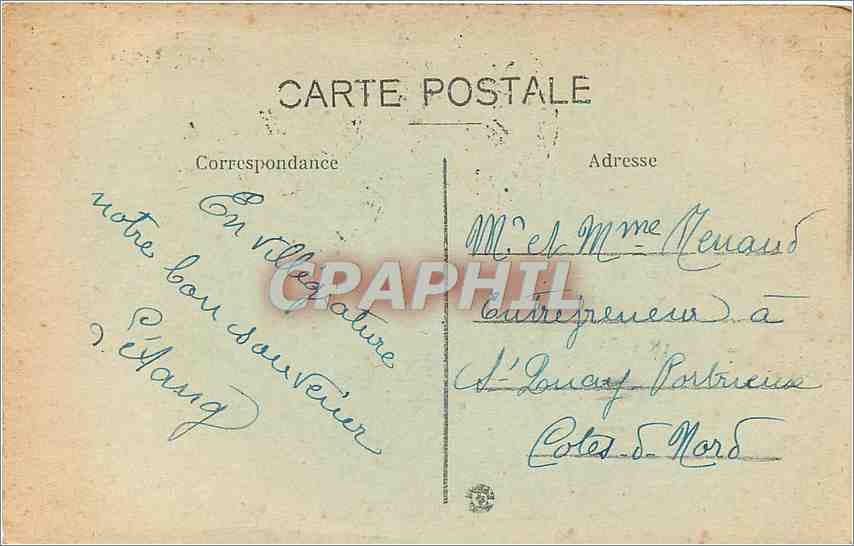 CARTE POSTALE
Correspondance
Adresse
En villégiature
notre bon souvenir
Létang
Mr et Mme Renaud
Entrepreneur à
St Quay Portrieux
Cotes-d-Nord
CPRAPHIL